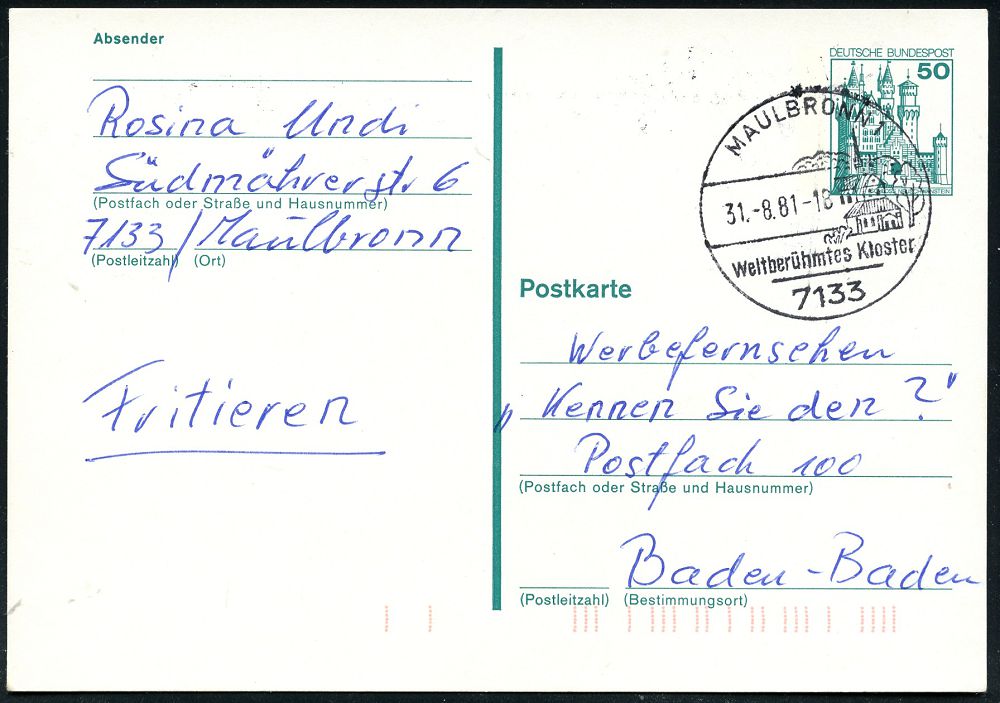 Absender
Rosina Undi
Südmährerstr 6
(Postfach oder Straße und Hausnummer)
7133 / Maulbronn
(Postleitzahl) (Ort)
Fritieren
DEUTSCHE BUNDESPOST
50
MAULBRONN 1
31.-8.81-18
Weltberühmtes Kloster
7133
Postkarte
Werbefernsehen
„Kennen Sie den ?"
Postfach 100
(Postfach oder Straße und Hausnummer)
Baden-Baden
(Postleitzahl) (Bestimmungsort)